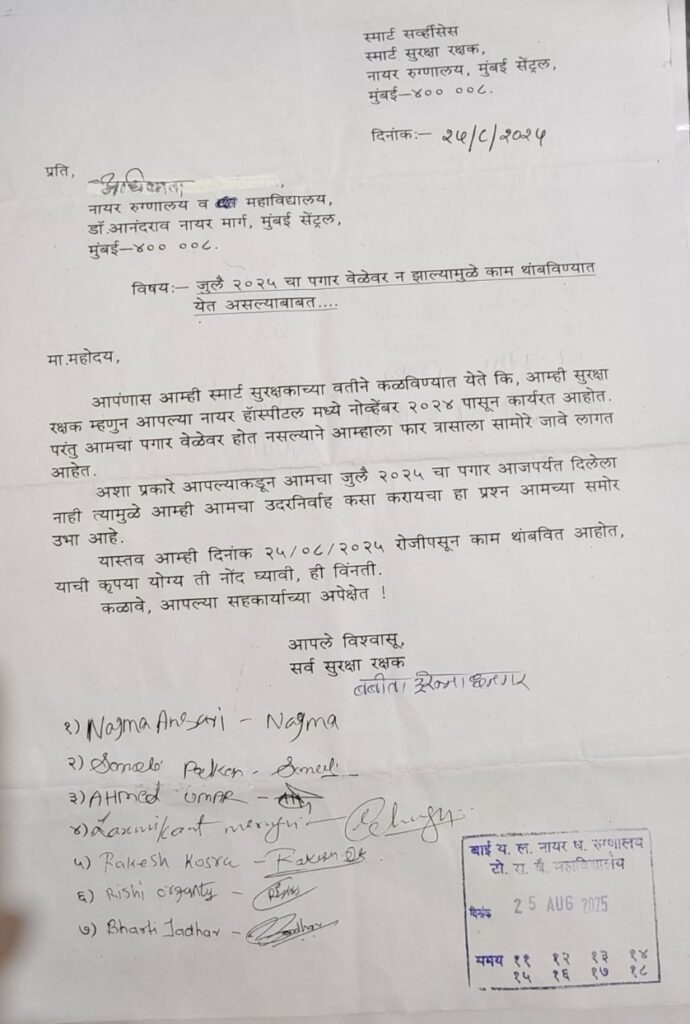 स्मार्ट सर्व्हीसेस
स्मार्ट सुरक्षा रक्षक,
नायर रुग्णालय, मुंबई सेंट्रल,
मुंबई–४०० ००८.
दिनांकः– २५/८/२०२५
प्रति,
अधिष्ठाता ,
नायर रुग्णालय व महाविद्यालय,
डॉ.आनंदराव नायर मार्ग, मुंबई सेंट्रल,
मुंबई–४०० ००८.
विषयः– जुलै २०२५ चा पगार वेळेवर न झाल्यामुळे काम थांबविण्यात
येत असल्याबाबत....
मा.महोदय,
आपंणास आम्ही स्मार्ट सुरक्षकाच्या वतीने कळविण्यात येते कि, आम्ही सुरक्षा
रक्षक म्हणुन आपल्या नायर हॅास्पीटल मध्ये नोव्हेंबर २०२४ पासून कार्यरत आहोत.
परंतु आमचा पगार वेळेवर होत नसल्याने आम्हाला फार त्रासाला सामोरे जावे लागत
आहेत.
अशा प्रकारे आपल्याकडून आमचा जुलै २०२५ चा पगार आजपर्यत दिलेला
नाही त्यामुळे आम्ही आमचा उदरनिर्वाह कसा करायचा हा प्रश्न आमच्या समोर
उभा आहे.
यास्तव आम्ही दिनांक २५/०८/२०२५ रोजीपसून काम थांबवित आहोत,
याची कृपया योग्य ती नोंद घ्यावी, ही विंनती.
कळावे, आपल्या सहकार्याच्या अपेक्षेत !
आपले विश्वासू,
सर्व सुरक्षा रक्षक
बबीता
१) Nagma Ansari – Nagma
२)
३) AHMED UMAR –
४) Laxmikant
५) Rakesh Kosra – Rakesh
६) Rishi
७) Bharti Jadhav – Jadhav
बाई य. ल. नायर ध. रुग्णालय
टो. रा. वै. महाविद्यालय
दिनांक 25 AUG 2025
समय ११ १२ १३ १४
१५ १६ १७ १८